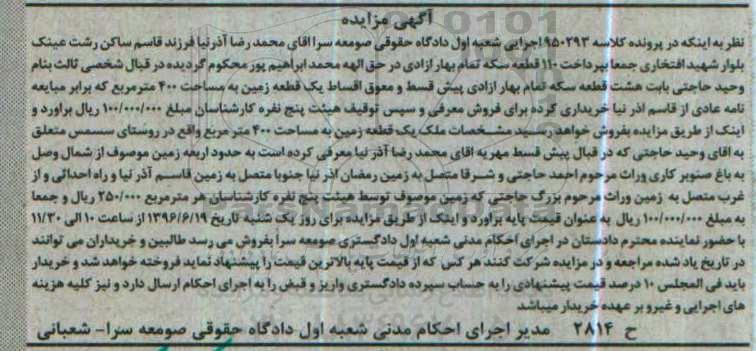 آگهی مزایده
نظر به اینکه در پرونده کلاسه ۹۵۰۲۹۳ اجرایی شعبه اول دادگاه حقوقی صومعه سرا اقای محمد رضا آذرنیا فرزند قاسم ساکن رشت عینک
بلوار شهید افتخاری جمعا بپرداخت ۱۱۰ قطعه سکه تمام بهار ازادی در حق الهه محمد ابراهیم پور محکوم گردیده در قبال شخصی ثالث بنام
وحید حاجتی بابت هشت قطعه سکه تمام بهار ازادی پیش قسط و معوق اقساط یک قطعه زمین به مساحت ۴۰۰ مترمربع که برابر مبایعه
نامه عادی از قاسم اذر نیا خریداری کرده برای فروش معرفی و سپس توقیف هیئت پنج نفره کارشناسان مبلغ ۱۰۰/۰۰۰/۰۰۰ ریال براورد و
اینک از طریق مزایده بفروش خواهد رسید مشخصات ملک یک قطعه زمین به مساحت ۴۰۰ متر مربع واقع در روستای سسمس متعلق
به اقای وحید حاجتی که در قبال پیش قسط مهریه اقای محمد رضا آذر نیا معرفی کرده است به حدود اربعه زمین موصوف از شمال وصل
به باغ صنوبر کاری وراث مرحوم احمد حاجتی و شرقا متصل به زمین رمضان اذر نیا جنوبا متصل به زمین قاسم آذر نیا و راه احداثی و از
غرب متصل به زمین وراث مرحوم بزرگ حاجتی که زمین موصوف توسط هیئت پنج نفره کارشناسان هر مترمربع ۲۵۰/۰۰۰ ریال و جمعا
به مبلغ ۱۰۰/۰۰۰/۰۰۰ ریال به عنوان قیمت پایه براورد و اینک از طریق مزایده برای روز یک شنبه تاریخ ۱۳۹۶/۶/۱۹ از ساعت ۱۰ الی ۱۱/۳۰
با حضور نماینده محترم دادستان در اجرای احکام مدنی شعبه اول دادگستری صومعه سرا بفروش می رسد طالبین و خریداران می توانند
در تاریخ یاد شده مراجعه و در مزایده شرکت کنند هر کس که از قیمت پایه بالاترین قیمت را پیشنهاد نماید فروخته خواهد شد و خریدار
باید فی المجلس ۱۰ درصد قیمت پیشنهادی را به حساب سپرده دادگستری واریز و قبض را به اجرای احکام ارسال دارد و نیز کلیه هزینه
های اجرایی و غیرو بر عهده خریدار میباشد
ح ۲۸۱۴ مدیر اجرای احکام مدنی شعبه اول دادگاه حقوقی صومعه سرا- شعبانی